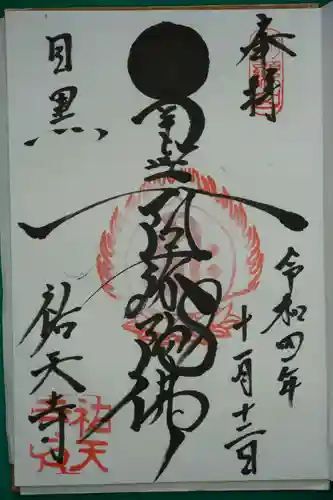 奉拝
令和四年
十一月十三日
南無阿弥陀佛
目黒
祐天寺
祐天
寺